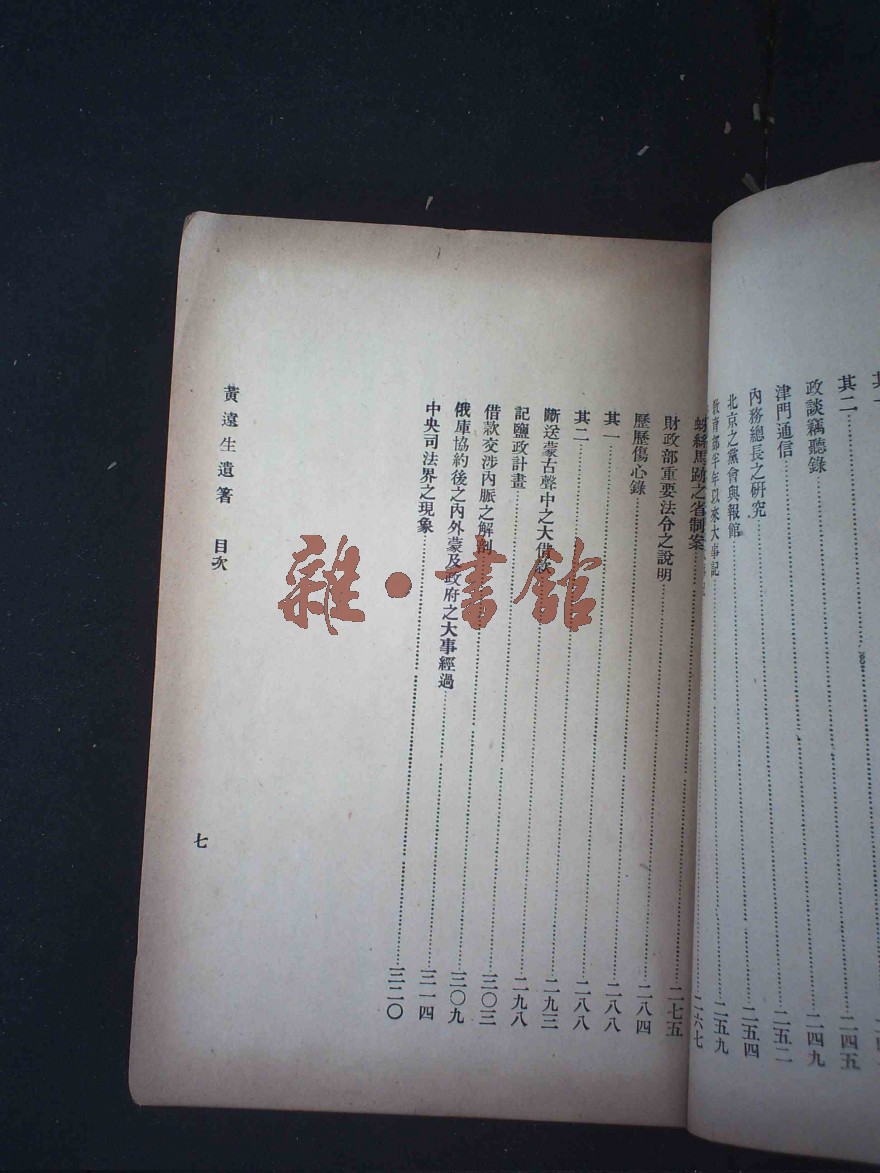 其二……二四五
政談竊聽錄……二四九
津門通信……二五二
內務總長之研究……二五四
北京之黨會與報館……二五九
教育部半年以來大事記……二六七
蛛絲馬跡之省制案……二七五
財政部重要法令之說明……二八四
歷歷傷心錄……二八八
其一……二八八
其二……二九三
斷送蒙古聲中之大借款……二九八
記鹽政計畫……三〇三
借款交涉內脈之解剖……三〇九
俄庫協約後之內外蒙及政府之大事經過……三一四
中央司法界之現象……三二〇
黃遠生遺著 目次 七
雜·書館